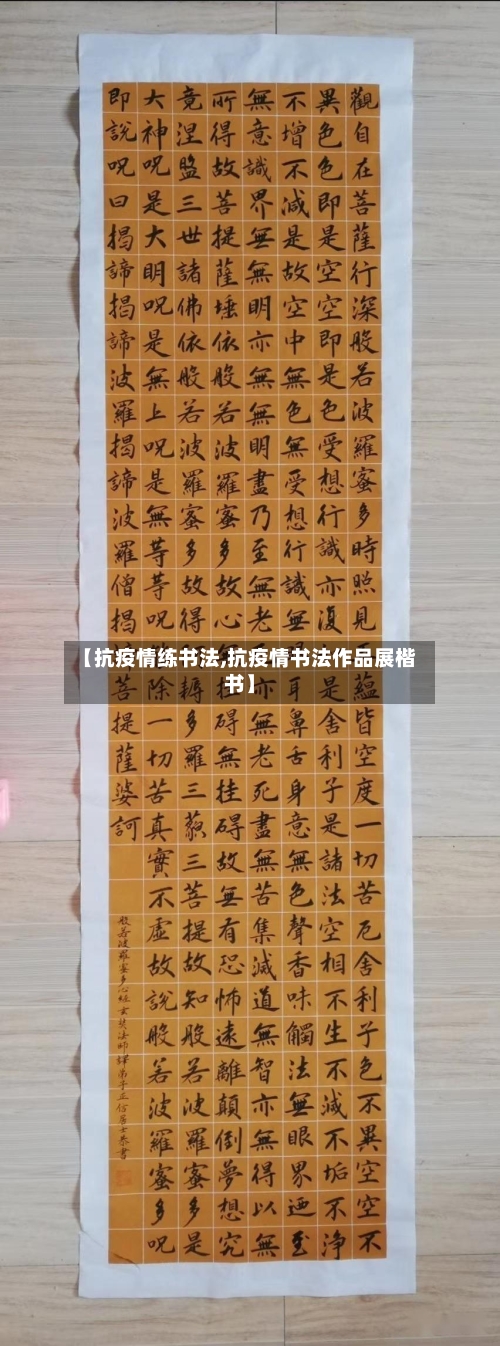 觀自在菩薩行深般若波羅蜜多時照見蘊皆空度一切苦厄舍利子色不異空空不
異色色即是空空即是色受想行識亦復是舍利子是諸法空相不生不滅不垢不淨
不增不減是故空中無色無受想行識無耳鼻舌身意無色聲香味觸法無眼界迺至
無意識界無無明亦無無明盡乃至無老亦無老死盡無苦集滅道無智亦無得以無
所得故菩提薩埵依般若波羅蜜多故心碍無挂碍故無有恐怖遠離顛倒夢想究
竟涅盤三世諸佛依般若波羅蜜多故得耨多羅三藐三菩提故知般若波羅蜜多是
大神呪是大明呪是無上呪是無等等呪除一切苦真實不虛故說般若波羅蜜多呪
即說呪曰揭諦揭諦波羅揭諦波羅僧揭菩提薩婆訶
般若波羅蜜多心經玄奘法師譯弟子正信居士恭書
【抗疫情练书法,抗疫情书法作品展楷
书】